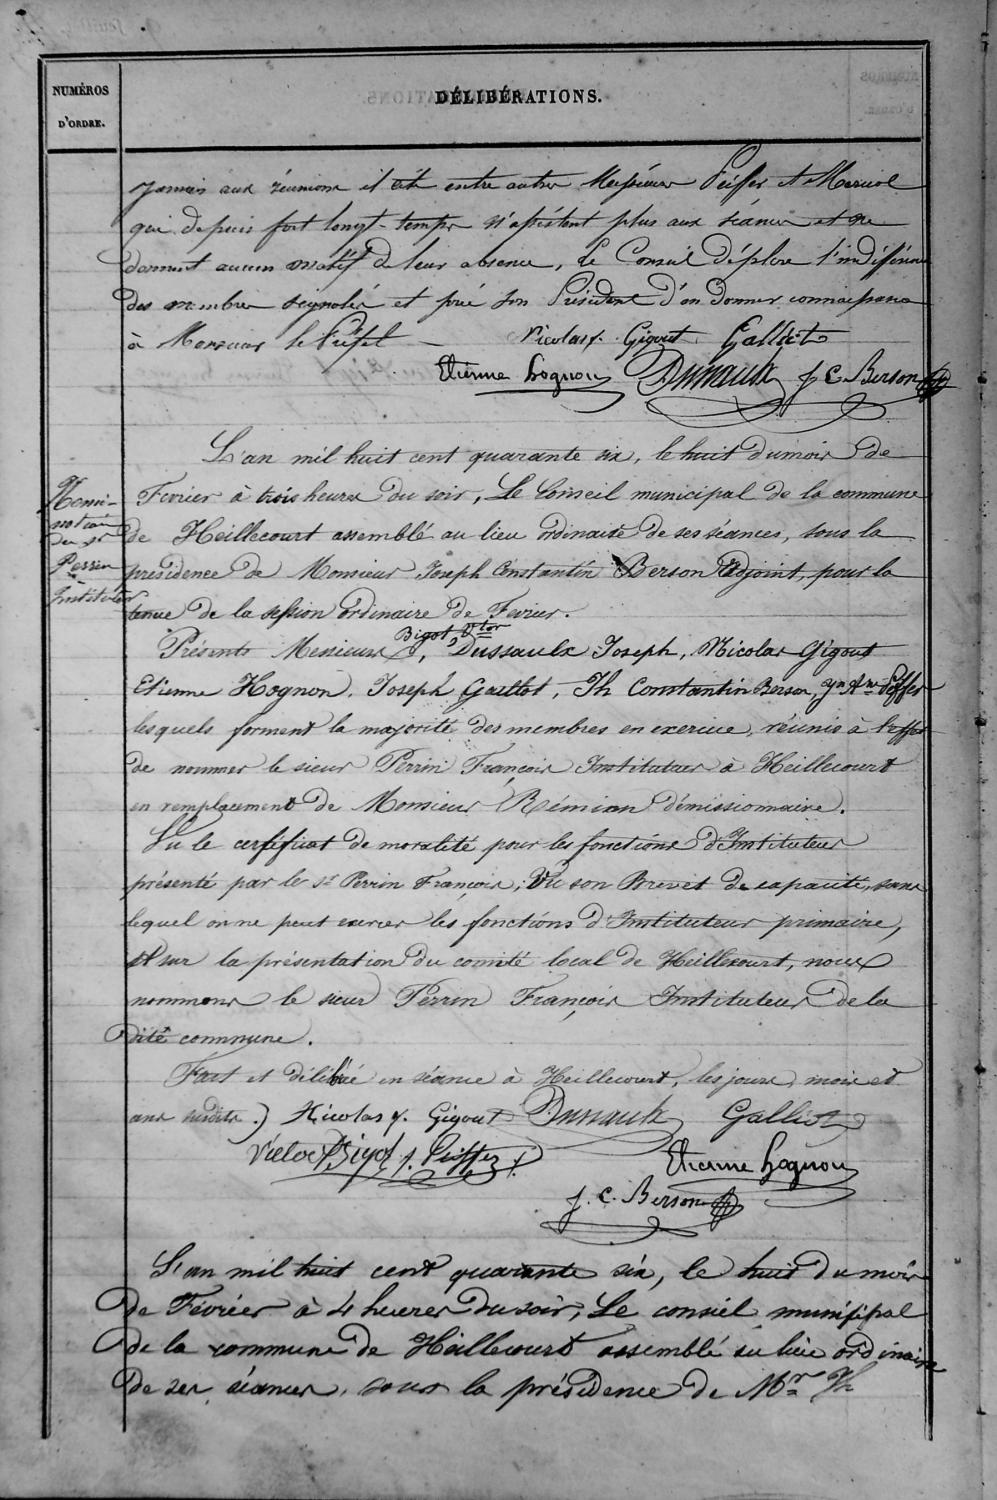 NUMÉROS
D'ORDRE.
DÉLIBÉRATIONS.
jamais aux réunions il cite entre autres Messieurs Peiffer et Maruol
qui depuis fort longt-temps n'assistent plus aux séances et ne
donnent aucun motif de leur absence, le Conseil déplore l'indifférence
des membres signalés et prie son Président d'en donner connaissance
à Monsieur le Préfet —
Nicolas f. Gigout Galliot
Etienne hognon Dussaulx J C. Berson
L'an mil huit cent quarante six, le huit du mois de
Fevrier à trois heures du soir, Le Conseil municipal de la commune
de Heillecourt assemblé au lieu ordinaire de ses séances, sous la
présidence de Monsieur Joseph Constantin Berson Adjoint, pour la
tenue de la session ordinaire de Fevrier.
Nomi-
nation
du Sr
Perrin
Instituteur
Bigot Vtor
Présents Messieurs, Dussaulx Joseph, Nicolas Gigout
Etienne Hognon, Joseph Galliot, Jh Constantin Berson, Peiffer
lesquels forment la majorité des membres en exercice, réunis à l'effet
de nommer le sieur Perrin François Instituteur à Heillecourt
en remplacement de Monsieur Rémian démissionnaire.
Vu le certificat de moralité pour les fonctions d'Instituteur
présenté par le Sr Perrin François; Vu son Brevet de capacité, sans
lequel on ne peut exercer les fonctions d'Instituteur primaire,
Et sur la présentation du comité local de Heillecourt, nous
nommons le sieur Perrin François Instituteur de la
dite commune.
Fait et délibéré en séance à Heillecourt, les jours, mois et
ans susdits.) Nicolas f. Gigout Dussaulx Galliot
Victor Bigot J. Peiffer
Etienne hognon
J. C. Berson
L'an mil huit cent quarante six, le huit du mois
de Fevrier à 4 heures du soir, Le conseil municipal
de la commune de Heillecourt assemblé au lieu ordinaire
de ses séances, sous la présidence de Mr Jh